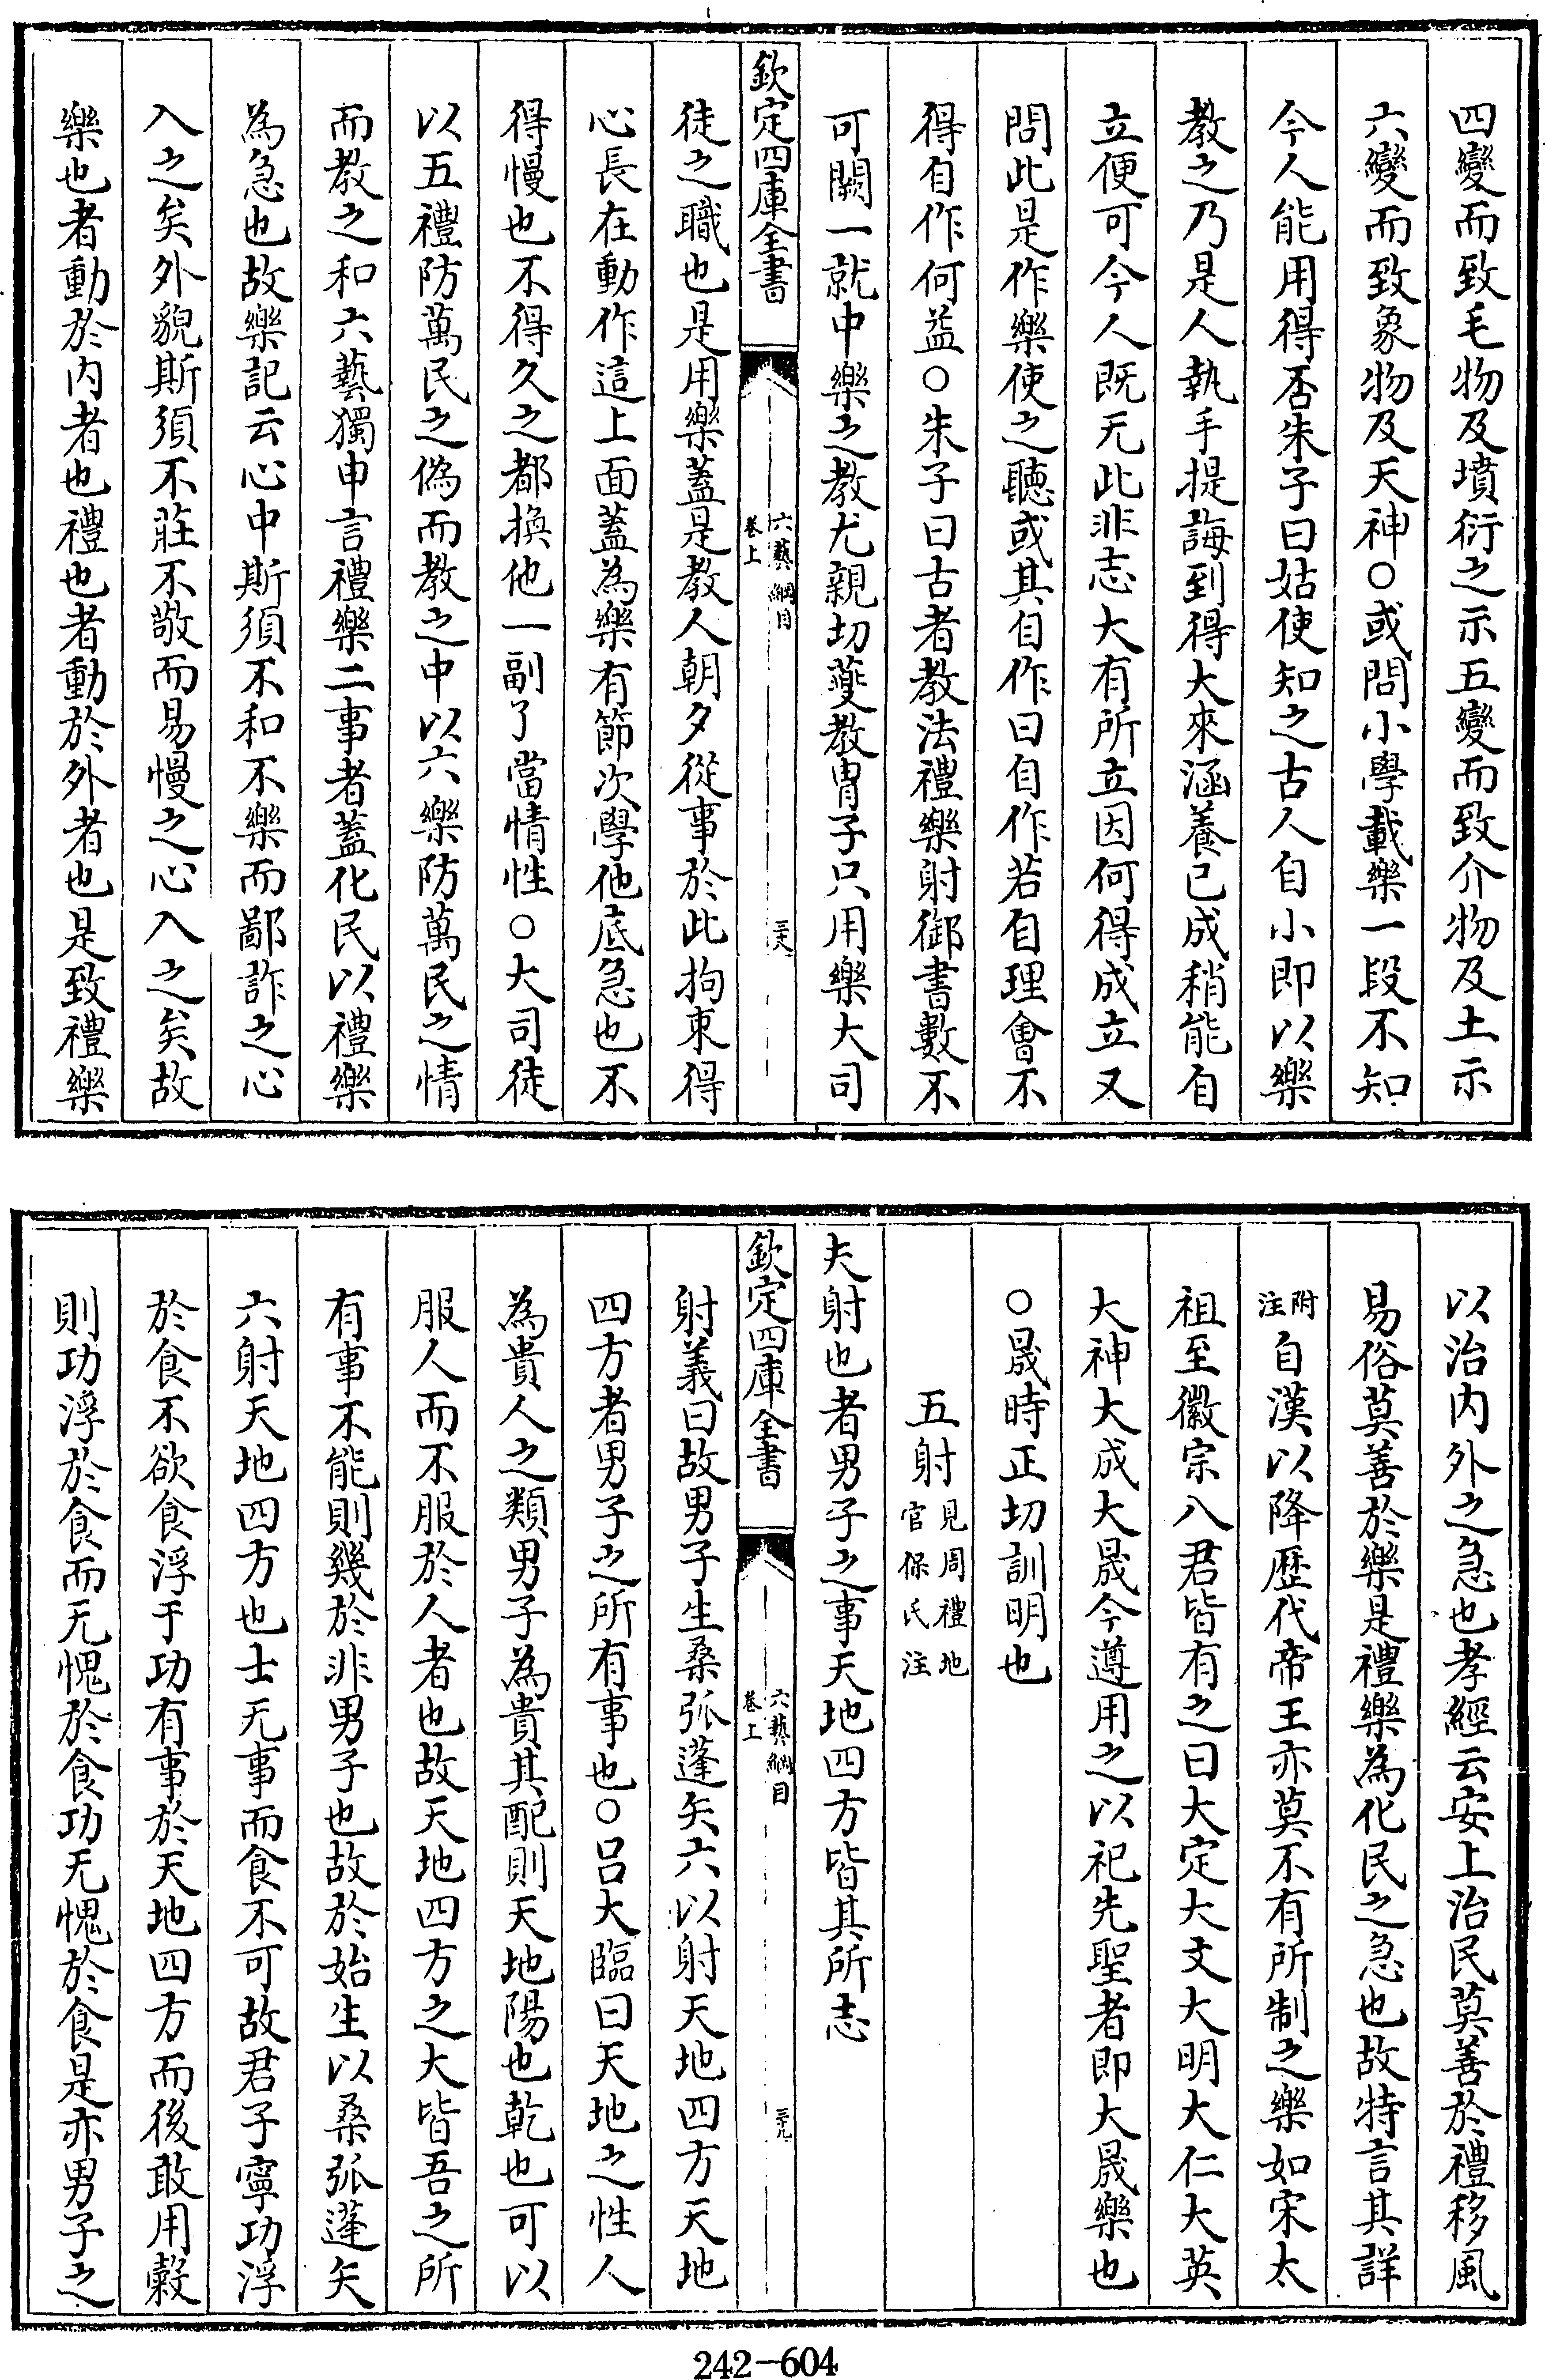 四變而致毛物及墳衍之示五變而致介物及土示
六變而致象物及天神○或問小學載樂一段不知
今人能用得否朱子曰姑使知之古人自小即以樂
教之乃是人執手提誨到得大來涵養已成稍能自
立便可今人既无此非志大有所立因何得成立又
問此是作樂使之聽或其自作曰自作若自理會不
得自作何益○朱子曰古者教法禮樂射御書數不
可闕一就中樂之教尤親切夔教胄子只用樂大司
欽定四庫全書
六藝綱目
卷上
三十八
徒之職也是用樂蓋是教人朝夕從事於此拘束得
心長在動作這上面蓋為樂有節次學他底急也不
得慢也不得久之都換他一副了當情性○大司徒
以五禮防萬民之偽而教之中以六樂防萬民之情
而教之和六藝獨申言禮樂二事者蓋化民以禮樂
為急也故樂記云心中斯須不和不樂而鄙詐之心
入之矣外貌斯須不莊不敬而易慢之心入之矣故
樂也者動於内者也禮也者動於外者也是致禮樂
以治内外之急也孝經云安上治民莫善於禮移風
易俗莫善於樂是禮樂為化民之急也故特言其詳
附注自漢以降歴代帝王亦莫不有所制之樂如宋太
祖至徽宗八君皆有之曰大定大文大明大仁大英
大神大成大晟今遵用之以祀先聖者即大晟樂也
○晟時正切訓明也
五射見周禮地官保氏注
夫射也者男子之事天地四方皆其所志
欽定四庫全書
六藝綱目
卷上
三十九
射義曰故男子生桑弧蓬矢六以射天地四方天地
四方者男子之所有事也○吕大臨曰天地之性人
為貴人之類男子為貴其配則天地陽也乾也可以
服人而不服於人者也故天地四方之大皆吾之所
有事不能則幾於非男子也故於始生以桑弧蓬矢
六射天地四方也士无事而食不可故君子寧功浮
於食不欲食浮于功有事於天地四方而後敢用穀
則功浮於食而无愧於食功无愧於食是亦男子之
242-604